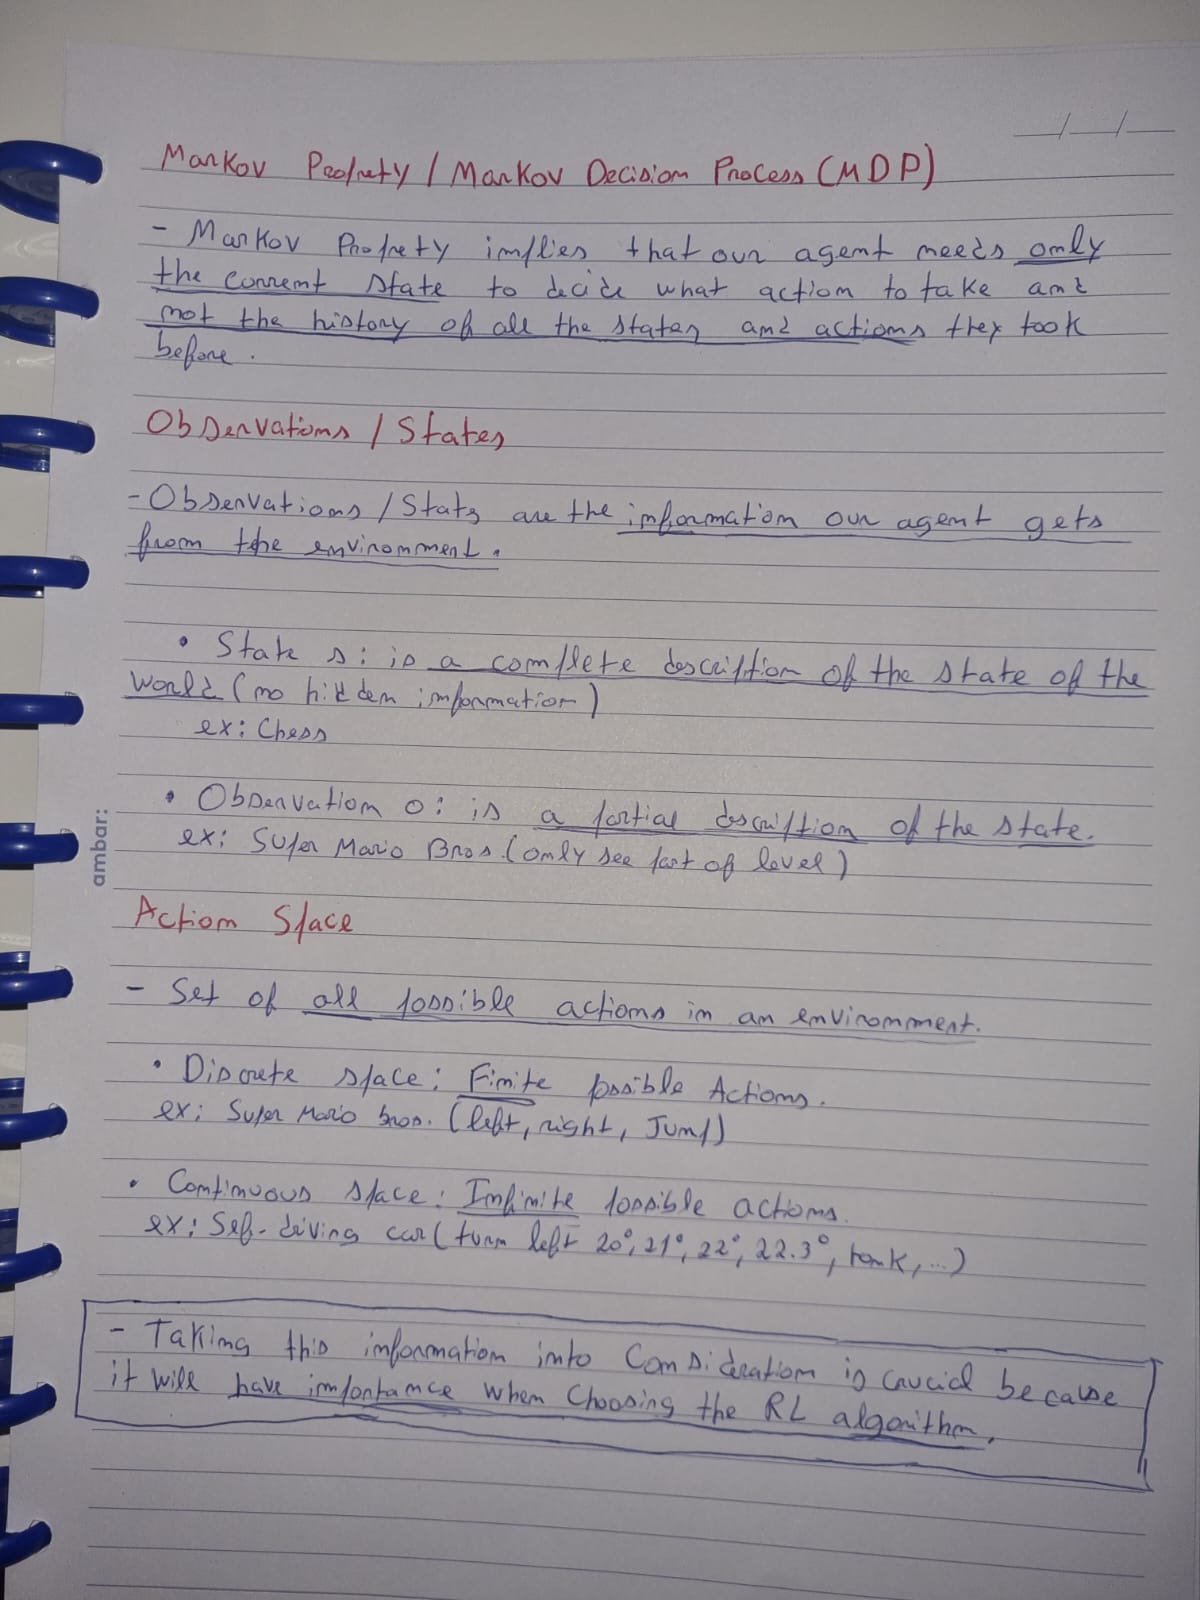 __/__/__
Markov Proprety / Markov Decision Process (MDP)
- Markov Proprety implies that our agent needs only
the current state to decide what action to take and
not the history of all the states and actions they took
before.
Observations / States
- Observations / States are the information our agent gets
from the environment.
• State s: is a complete description of the state of the
World (no hidden information)
ex: Chess
• Observation o: is a partial description of the state.
ex: Super Mario Bros. (only see part of level)
ambar:
Action Space
- Set of all possible actions in an environment.
• Discrete space: Finite possible Actions.
ex: Super Mario bros. (left, right, Jump)
• Continuous space: Infinite possible actions.
ex: Self-driving car (turn left 20°, 21°, 22°, 22.3°, honk, ...)
- Taking this information into Consideration is crucial because
it will have importance when Choosing the RL algorithm.